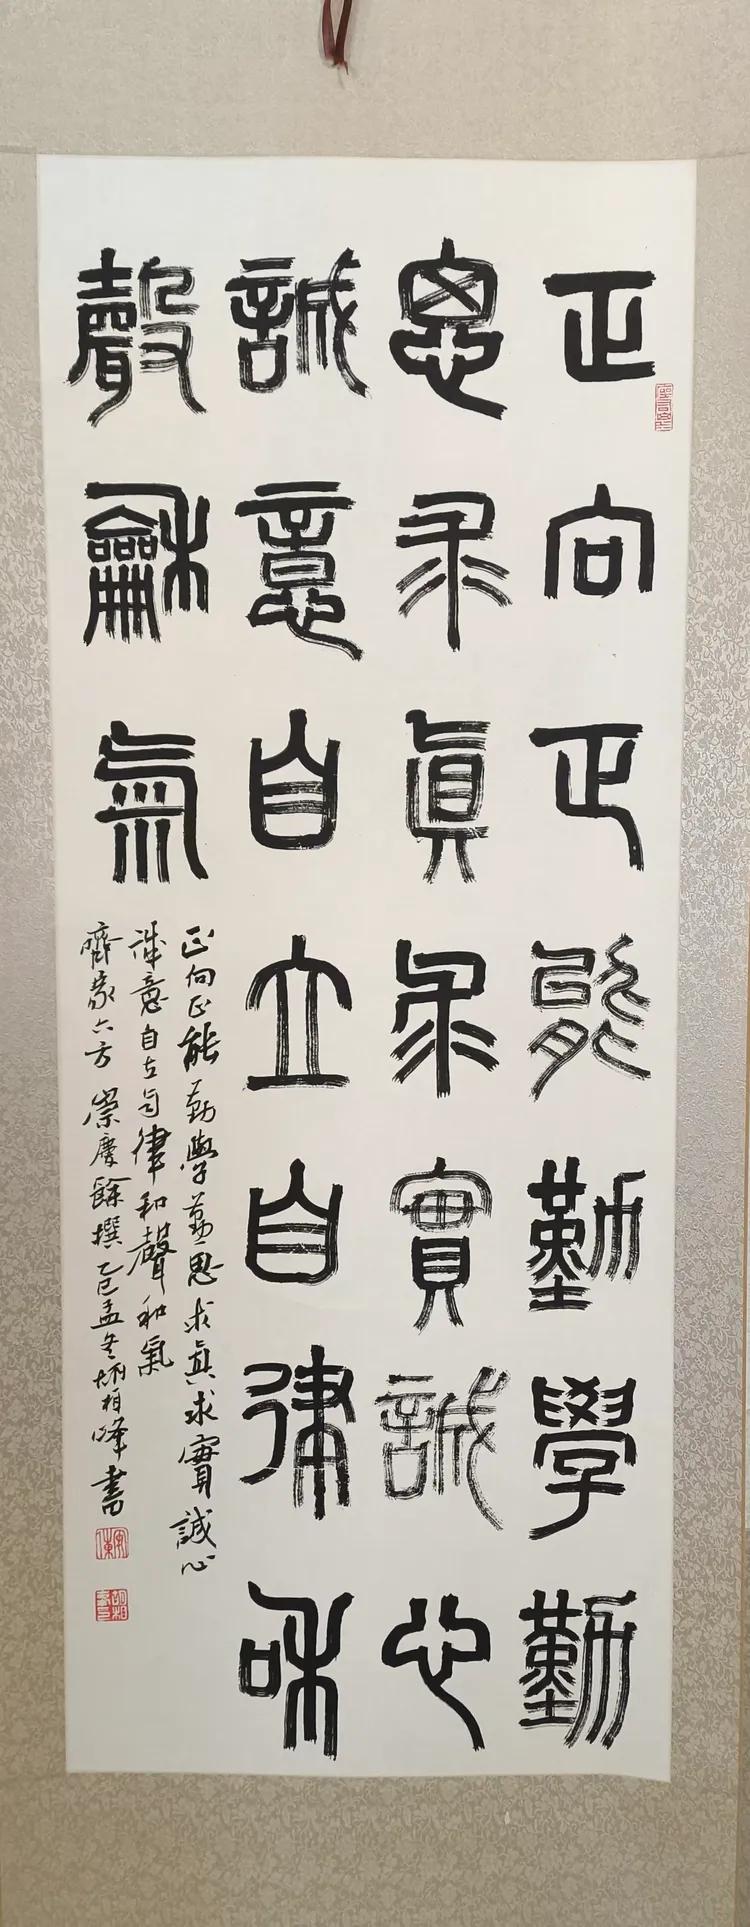 正向正能勤學勤
思求真求實誠心
誠意自立自律和
聲龢氣
正向正能勤學勤思求真求實誠心
誠意自立自律和聲和氣
齊家六方 崇慶餘撰乙巳孟冬柏峰書